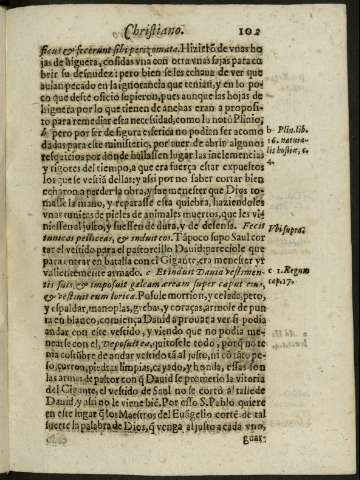 Christiano. 102
ficus & fecerunt sibi perizomata. Hizierō de vnas ho
jas de higuera, cosidas vna con otra vnas fajas para cu
brir su desnudez: pero bien se les echaua de ver que
auian pecado en la ignorancia que tenian, y en lo po
co que deste oficio supieron, pues aunque las hojas de
higuera por lo que tienen de anchas eran a proposi-
to para remediar esa necesidad, como lo notò Plinio,
b pero por ser de figura esferica no podian ser acomo
dadas para este ministerio, por auer de abrir algunos
resquicios por donde hallassen lugar las inclemencias
y rigores del tiempo, a que era fuerça estar expuestos
los que se vestiā dellas: y assi por no saber cortar bien
echaron a perder la obra, y fue menester que Dios to-
masse la mano, y reparasse esta quiebra, haziendoles
vnas tunicas de pieles de animales muertos, que les vi-
niessen al justo, y fuessen de dura, y de defensa. Fecit
tunicas pelliceas, & induit eos. Tāpoco supo Saul cor
tar el vestido para el pastorcillo Dauid: pareciole que
para entrar en batalla con el Gigante, era menester yr
valientemente armado. c Et induit Dauid vestimen-
tis suis, & imposuit galeam æream super caput eius,
& vestiuit eum lorica. Pusole morrion, y celada, peto,
y espaldar, manoplas, grebas, y coraças, armole de pun
ta en blanco, comiença Dauid a prouar a ver si podia
andar con este vestido, y viendo que no podia me-
nearse con el, Deposuit ea, quitosele todo, porq̄ no te
nia costūbre de andar vestido tā al justo, ni cō tāto pe-
so, çurron, piedras limpias, cayado, y honda, essas son
las armas de pastor con q̄ Dauid se prometio la vitoria
del Gigante, el vestido de Saul no se cortò al talle de
Dauid, y assi no le viene biē. Por esso S. Pablo quiere
en este lugar q̄ los Maestros del Euāgelio cortē de tal
suerte la palabra de Dios, q̄ venga al justo a cada vno,
guar-
b Plin. lib.
16. natura-
lis hostiæ, c.
4.
Vbi supra.
c 1. Regum
cap. 17.